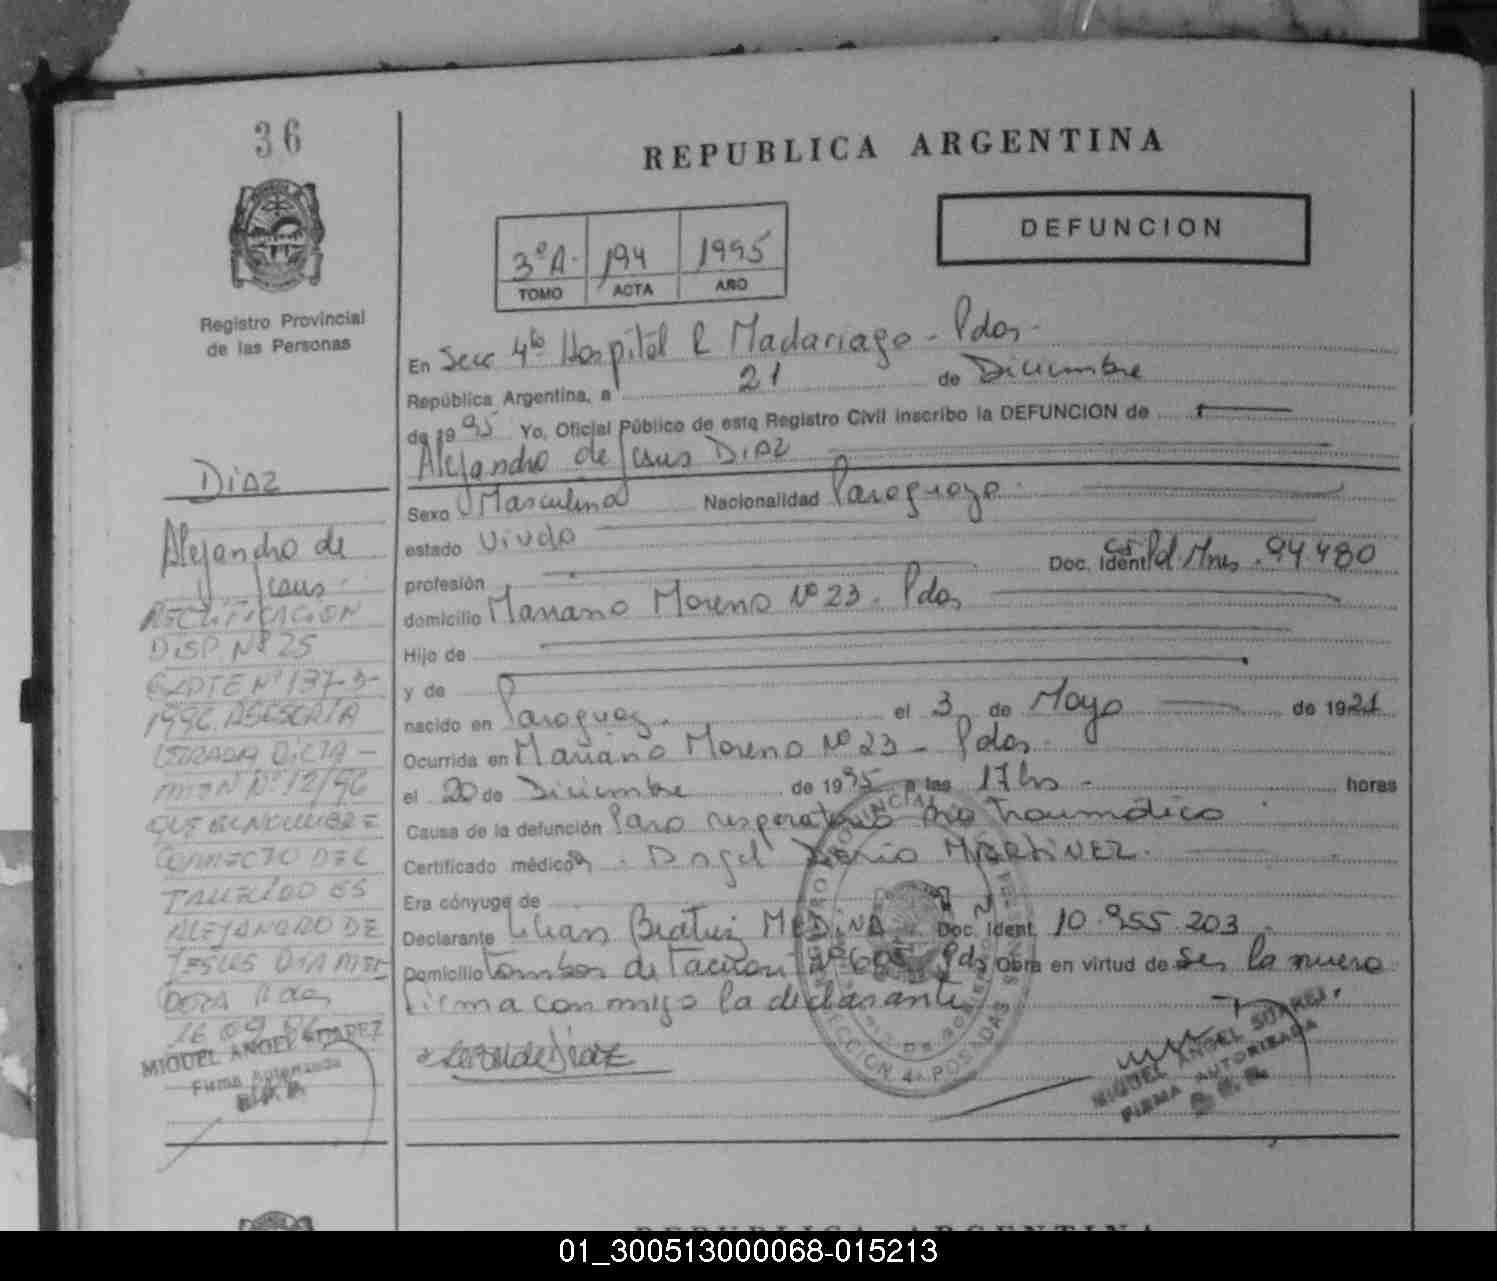 36
REPUBLICA ARGENTINA
Registro Provincial
de las Personas
3ºA. 194 1995
TOMO ACTA AÑO
DEFUNCION
En Secc 4ta Hospital R Madariaga - Pdas -
República Argentina, a 21 de Diciembre
de 1995 Yo, Oficial Público de este Registro Civil inscribo la DEFUNCION de
Alejandro de Jesus DIAZ
Sexo Masculino Nacionalidad Paraguaya
estado Viudo
profesión Doc. Ident. Pol Mnes. 94.480
domicilio Mariano Moreno Nº 23. Pdas
Hijo de
y de
nacido en Paraguay. el 3 de Mayo de 1921
Ocurrida en Mariano Moreno Nº 23 - Pdas.
el 20 de Diciembre de 1995 a las 17 hs - horas
Causa de la defunción Paro respiratorio no traumático
Certificado médico Dario MARTINEZ.
Era cónyuge de
Declarante Lilian Beatriz MEDINA Doc. Ident. 10.955.203
Domicilio Tambor de Tacuari Nº Pdas Obra en virtud de Ser la nuera
Firma conmigo la declarante
DIAZ
Alejandro de
Jesus
RECTIFICACION
DISP. Nº 25
EXPTE Nº 137-3-
1996. ASESORIA
LETRADA DICTA-
MEN Nº 12/96
QUE EL NOMBRE
CORRECTO DEL
FALLECIDO ES
ALEJANDRO DE
JESUS DIA
Pdas
16 09 96
MIGUEL ANGEL SUAREZ
Firma Autorizada
SECCION 4ª POSADAS
MIGUEL ANGEL SUAREZ
FIRMA AUTORIZADA
REPUBLICA ARGENTINA
01_300513000068-015213